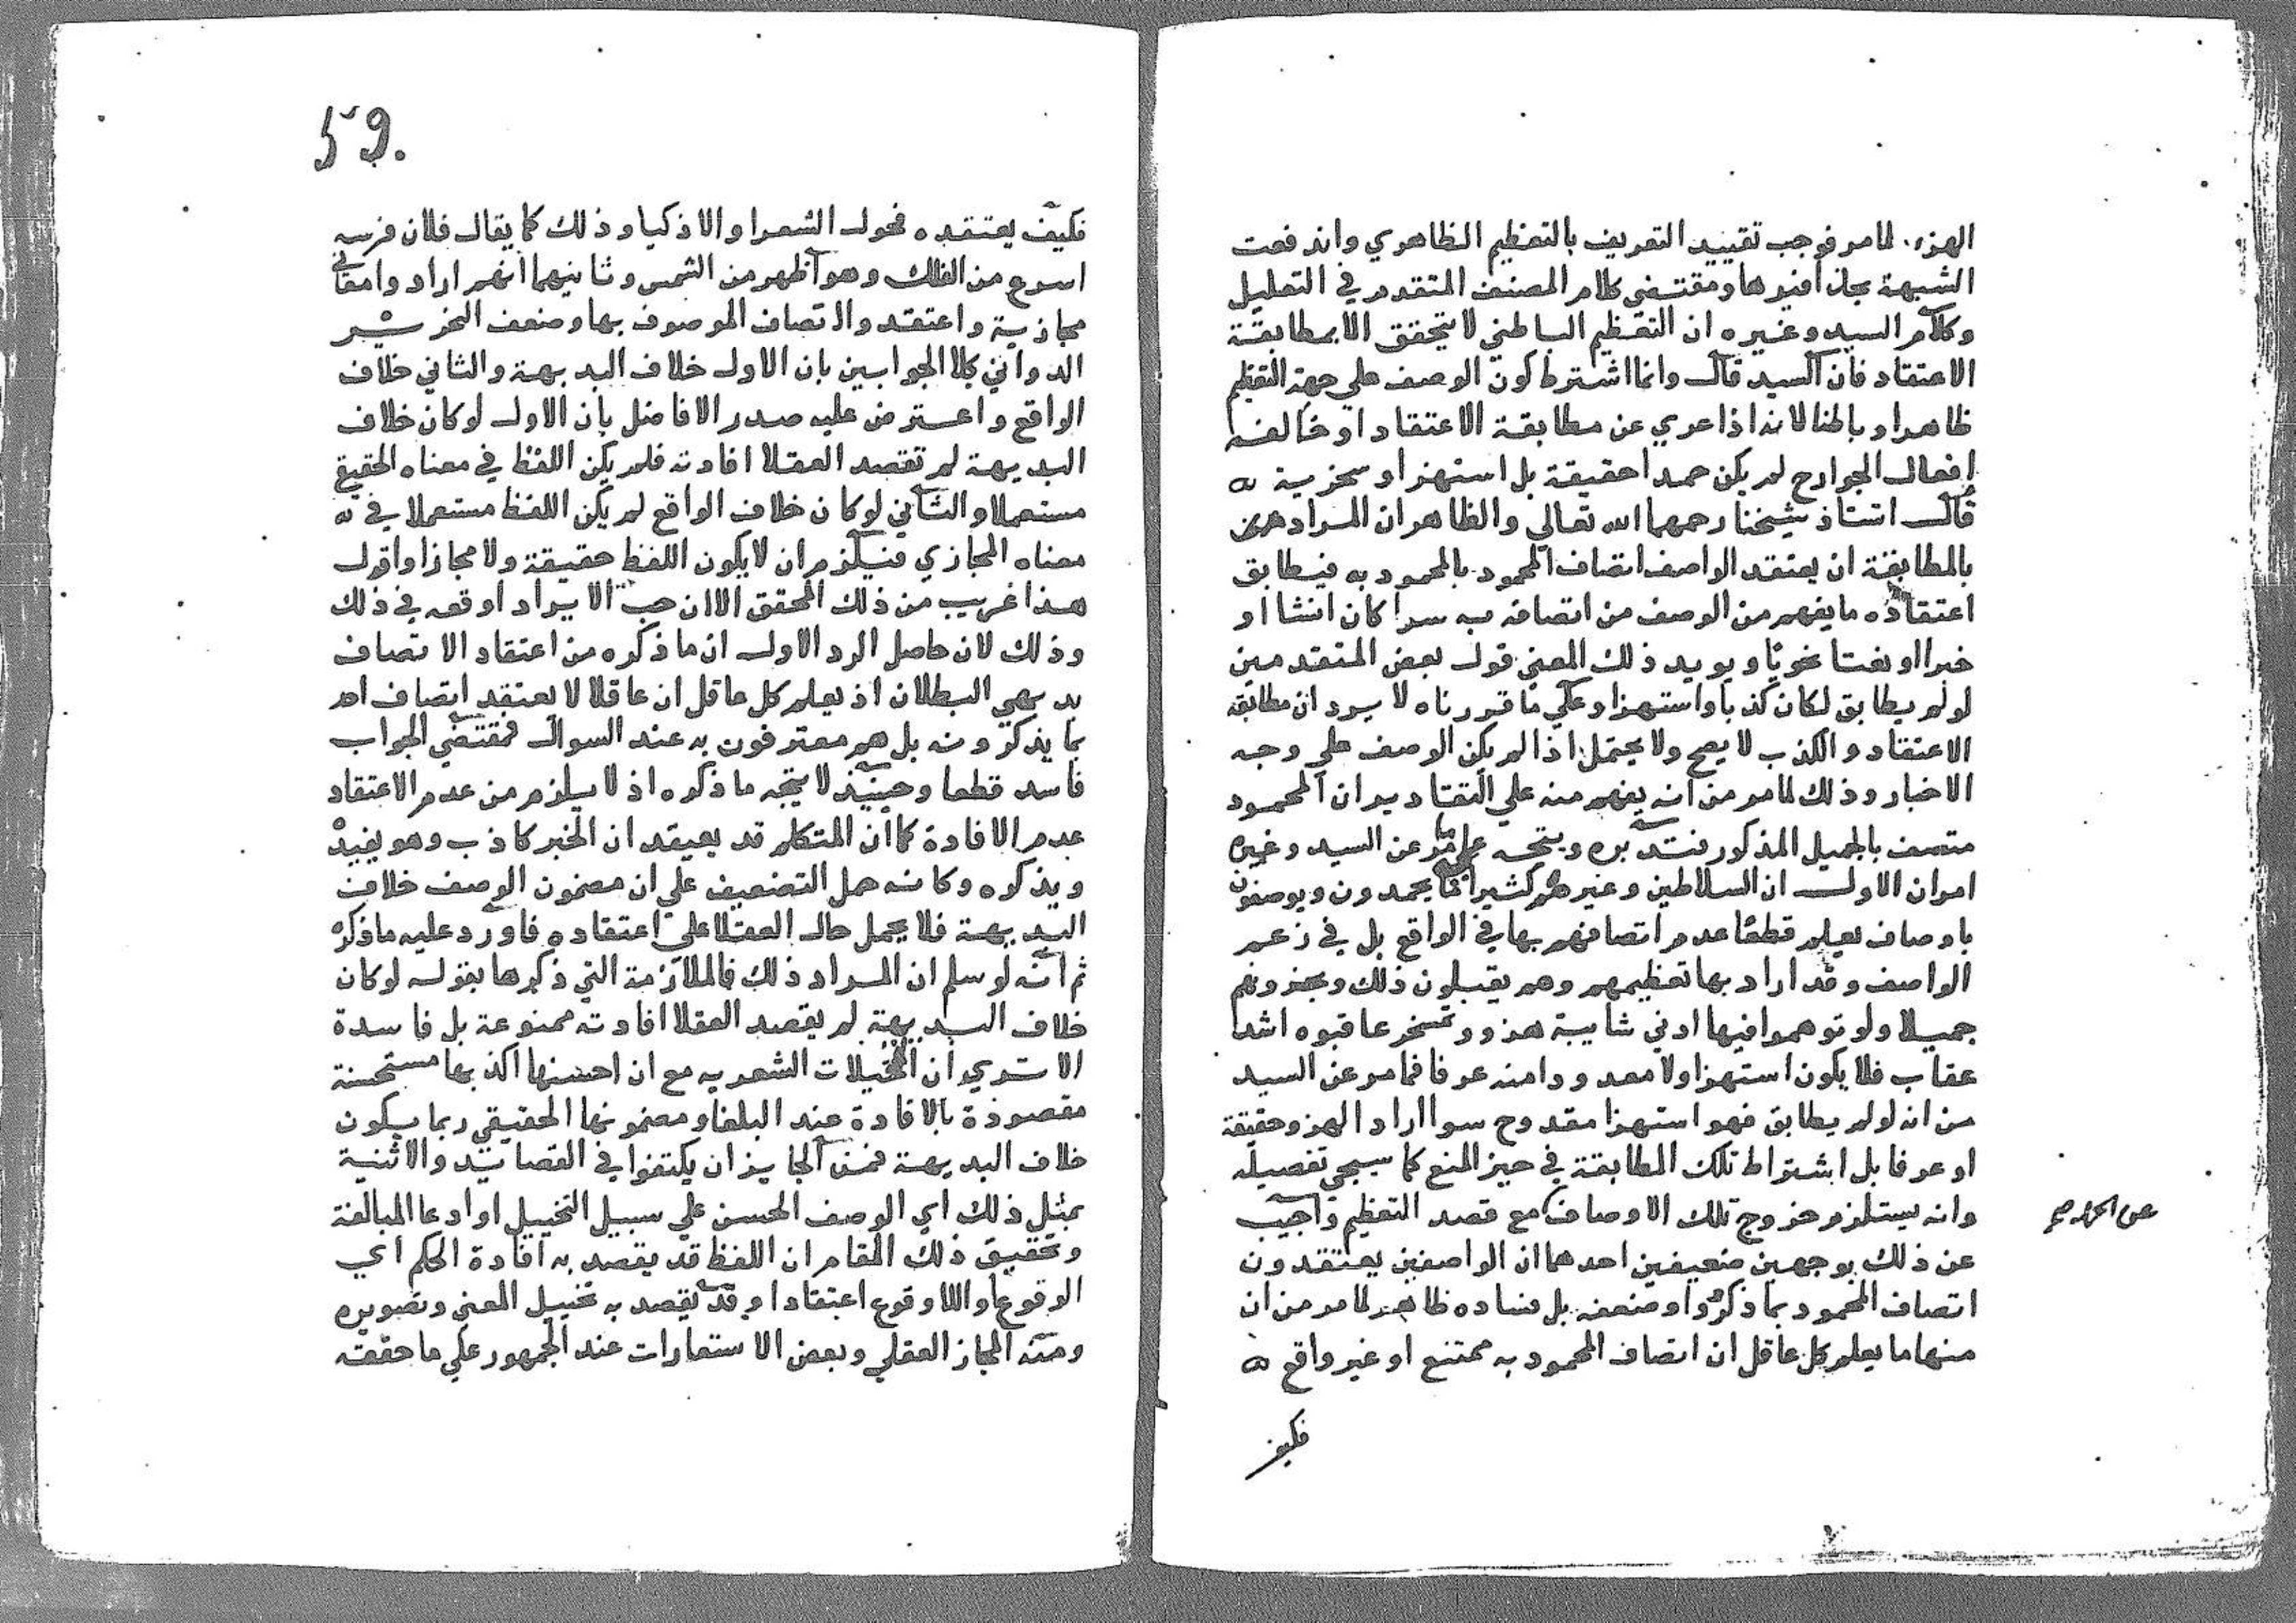 الهزء. لمامر فوجب تقييد التعريف بالتعظيم الظاهري واندفعت
الشبهة بحذافيرها ومقتضي كلام المصنف المتقدم في التعليل
وكلام السيد وغيره ان التعظيم الباطني لا يتحقق الا بمطابقة
الاعتقاد فان السيد قال وانما اشترط كون الوصف علي جهة التعظيم
ظاهرا وباطنا لانه اذا عري عن مطابقة الاعتقاد او خالفه
افعال الجوارح لم يكن حمدا حقيقة بل استهزا وسخرية
قال استاذ شيخنا رحمهما الله تعالي والظاهر ان المراد
بالمطابقة ان يعتقد الواصف اتصاف المحمود بالمحمود به فيطابق
اعتقاده ما يفهم من الوصف من اتصافه به سوا كان انشا او
خبرا او نعتا نحويا ويويد ذلك المعني قول بعض المتقدمين
لو لم يطابق لكان كذبا واستهزا وعلي ما قررناه لا يرد ان مطابقة
الاعتقاد والكذب لا يصح ولا يحتمل اذا لم يكن الوصف علي وجه
الاخبار وذلك لمامر من انه يفهم منه علي التقادير ان المحمود
متصف بالجميل المذكور فتدبره ويتجه علي ما مر عن السيد وغيره
امران الاول ان السلاطين وغيرهم كثيرا ما يحمدون ويوصفون
باوصاف يعلم قطعا عدم اتصافهم بها في الواقع بل في زعم
الواصف وقد اراد بها تعظيمهم وهم يقبلون ذلك ويجزونهم
جميلا ولو توهموا فيها ادني شايبة هزو وتمسخر عاقبوه اشد
عقاب فلا يكون استهزا ولا معدودا منه عرفا فمامر عن السيد
من انه لو لم يطابق فهو استهزا مقدوح سوا اراد الهزو حقيقة
او عرفا بل اشتراط تلك المطابقة في حيز المنع كما سيجي تفصيله
وانه يستلزم خروج تلك الاوصاف مع قصد التعظيم واجيب
عن ذلك بوجهين ضعيفين احدهما ان الواصفين يعتقدون
اتصاف المحمود بما ذكروا وضعفه بل فساده ظاهر لمامر من ان
منها ما يعلم كل عاقل ان اتصاف المحمود به ممتنع او غير واقع
فكيف
59.
فكيف يعتقده فحول الشعرا والاذكيا وذلك كما يقال فلان فرسه
اسرع من الفلك وهو اظهر من الشمس وثانيهما انهم ارادوا معاني
مجازية واعتقدوا الاتصاف الموصوف بها وضعف النحرير
الدواني كلا الجوابين بان الاول خلاف البديهة والثاني خلاف
الواقع واعترض عليه صدر الافاضل بان الاول لو كان خلاف
البديهة لم تقصد العقلا افادته فلم يكن اللفظ في معناه الحقيقي
مستعملا والثاني لو كان خلاف الواقع لم يكن اللفظ مستعملا في
معناه المجازي فيلزم ان لا يكون اللفظ حقيقة ولا مجازا واقول
هذا غريب من ذلك المحقق الا ان حب الايراد اوقعه في ذلك
وذلك لان حاصل الرد الاول ان ما ذكره من اعتقاد الاتصاف
بديهي البطلان اذ يعلم كل عاقل ان عاقلا لا يعتقد اتصاف احد
بما يذكرونه بل هم معترفون به عند السوال فمقتضي الجواب
فاسد قطعا وحينيذ لا يتجه ما ذكره اذ لا يلزم من عدم الاعتقاد
عدم الافادة كما ان المتكلم قد يعتقد ان الخبر كاذب وهو يفيده
ويذكره وكانه حمل التضعيف علي ان مضمون الوصف خلاف
البديهة فلا يحمل حال العقلا علي اعتقاده فاورد عليه ما ذكره
ثم انه لو سلم ان المراد ذلك فالملازمة التي ذكرها بقوله لو كان
خلاف البديهة لم يقصد العقلا افادته ممنوعة بل فاسدة
الا تري ان المخيلات الشعريه مع ان احسنها اكذبها مستحسنة
مقصودة بالافادة عند البلغا ومضمونها الحقيقي ربما يكون
خلاف البديهة فمن الجايز ان يكتفوا في القصايد والاثنية
بمثل ذلك اي الوصف الحسن علي سبيل التخييل او ادعا المبالغة
وتحقيق ذلك المقام ان اللفظ قد يقصد به افادة الحكم اي
الوقوع او اللاوقوع اعتقادا وقد يقصد به تخييل المعني وتصويره
ومنه المجاز العقلي وبعض الاستعارات عند الجمهور علي ما حققه